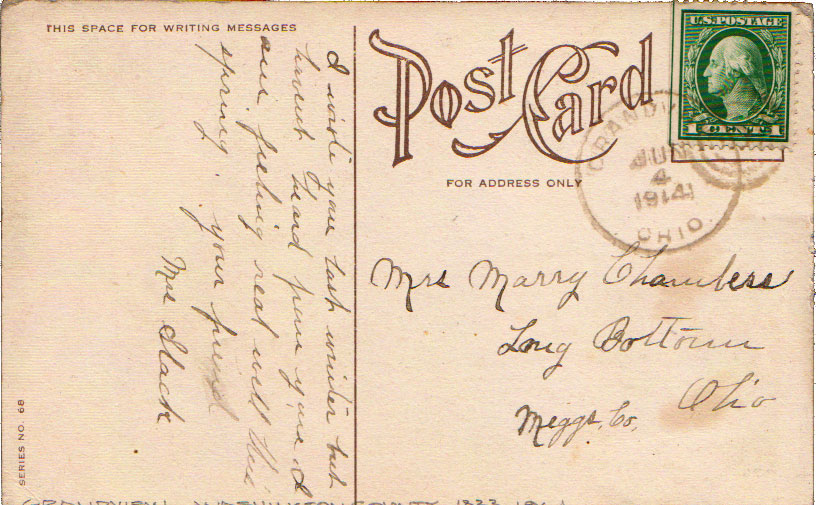 THIS SPACE FOR WRITING MESSAGES
I wrote you last winter but
havent heard from you I
am feeling real well this
spring. your friend
Mrs Slack
SERIES NO. 68
Post Card
FOR ADDRESS ONLY
U.S. POSTAGE
1 CENT 1
GRANDV
JUN
4
1914
OHIO
Mrs Marry Chambers
Long Bottom
Ohio
Meggs, Co,
GRANDVIEW WASHINGTON COUNTY 1833-19